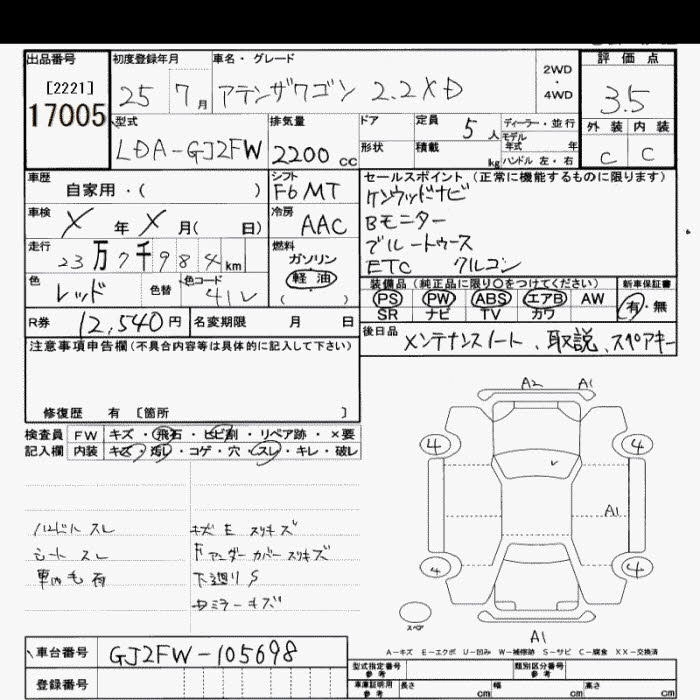 出品番号 初度登録年月 車名・グレード 評価点
[2221] 25 7月 アテンザワゴン 2.2XD 2WD・4WD 3.5
17005 型式 排気量 ドア 定員 5人 ディーラー・並行 外装 内装
LDA-GJ2FW 2200cc 形状 積載 kg モデル年式 年 ハンドル 左・右 C C
車歴 シフト セールスポイント (正常に機能するものに限ります)
自家用・( ) F6 MT ケンウッドナビ
車検 X年X月( 日) 冷房 AAC Bモニター
走行 23万7千984km 燃料 ガソリン ブルートゥース
軽油 ETC クルコン
色 レッド 色替 色コード 41V ( ) 装備品(純正品に限り○をつけてください) 新車保証書
PS PW ABS エアB AW 有・無
SR ナビ TV カワ
R券 12,540円 名変期限 月 日 後日品 メンテナンスノート、取説、スペアキー
注意事項申告欄(不具合内容等は具体的に記入して下さい)
修復歴 有 〔箇所 〕
A2 A1
検査員 FW キズ・飛石・ヒビ割・リペア跡・×要
記入欄 内装 キズ・汚れ・コゲ・穴・スレ・キレ・破レ
4 4
A1
ハンドル スレ キズ E スリキズ
シート スレ Fアンダーカバースリキズ
車内毛有 下廻りS
ミラーキズ
4 4
スペア
A1
A-キズ E-エクボ U-凹み W-補修跡 S-サビ C-腐食 XX-交換済
車台番号 GJ2FW-105698
型式指定番号 参考 類別区分番号 参考
登録番号 車庫証明用 参考 長さ cm 幅 cm 高さ cm